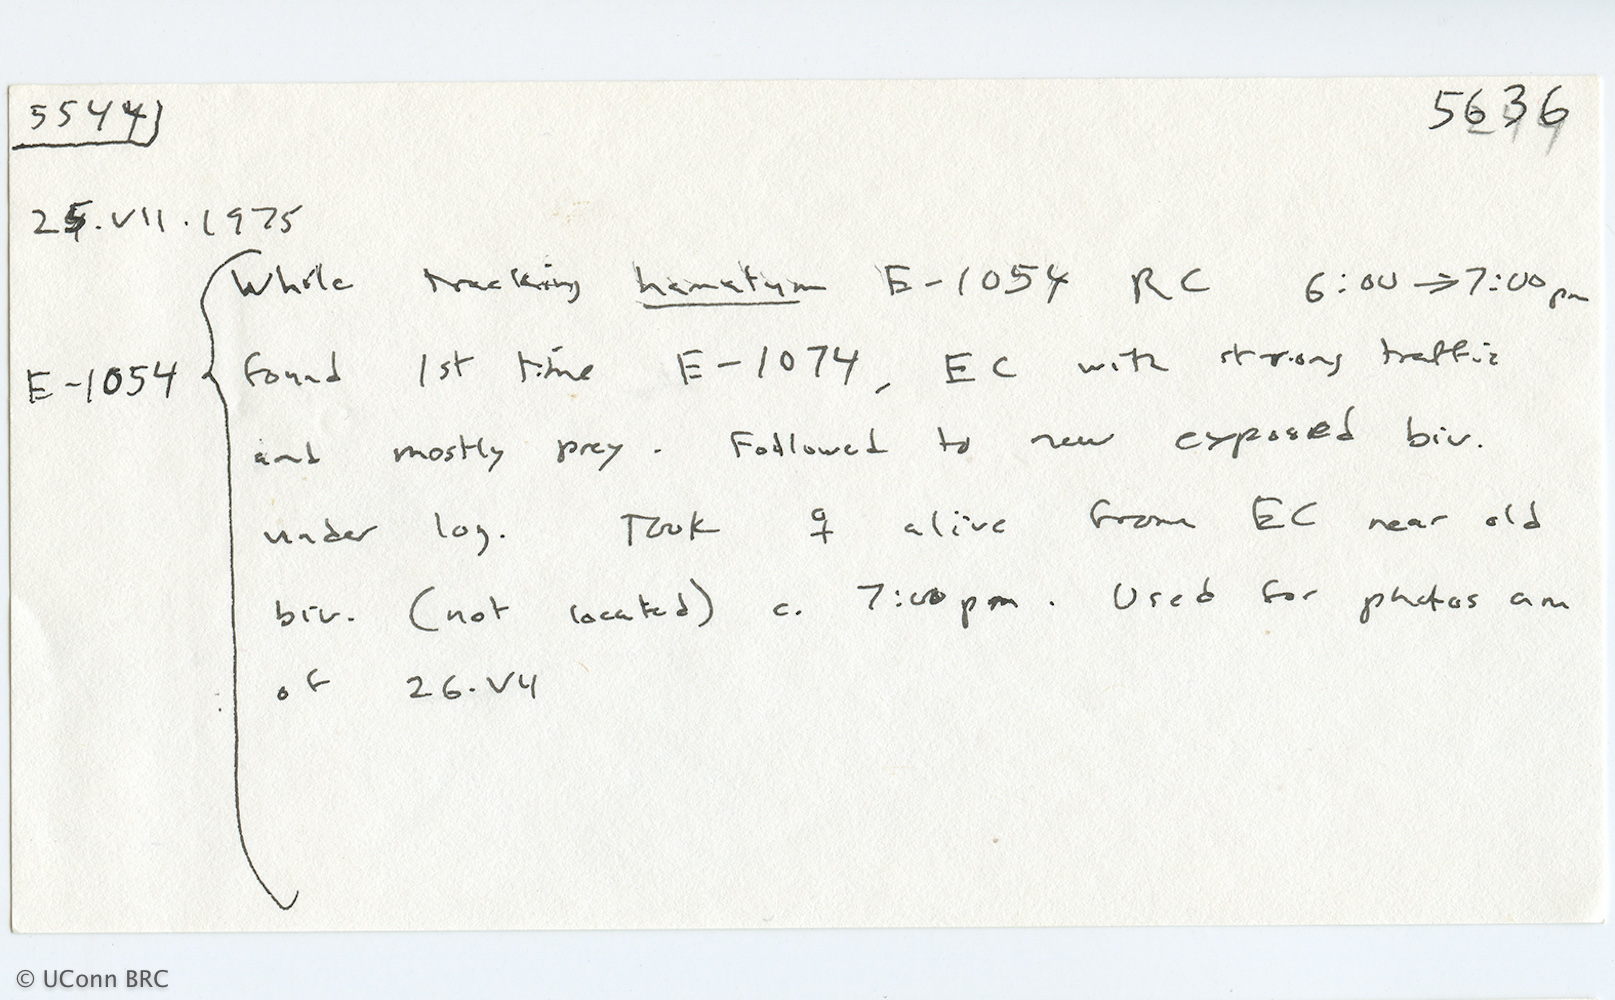 5544
5636
25.VII.1975
While tracking hamatum E-1054 RC 6:00 → 7:00 pm
E-1054
found 1st time E-1074, EC with strong traffic
and mostly prey. Followed to new exposed biv.
under log. Took ♀ alive from EC near old
biv. (not located) c. 7:00 pm. Used for photos am
of 26.VII
© UConn BRC